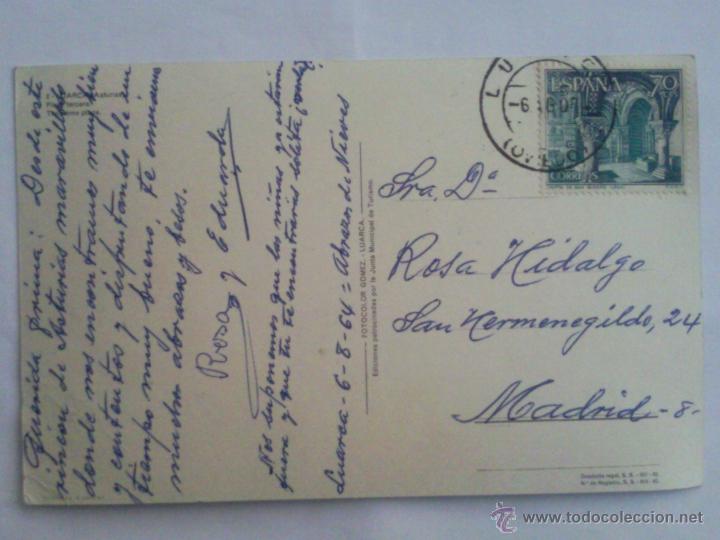 Querida prima: Desde este
rincón de Asturias maravilloso
donde nos encontramos muy bien
y contentos y disfrutando de un
tiempo muy bueno, te enviamos
muchos abrazos y besos.
Rosa y Eduardo
Nos suponemos que las niñas ya estarán
fuera y que tu te encontrarás solita
Luarca-6-8-64= Abrazos de Nieves
LUARCA (Asturias)
FOTOCOLOR GOMEZ.- LUARCA.
Ediciones patrocinadas por la Junta Municipal de Turismo.
ESPAÑA 70
CORREOS
(OVIEDO)
Sra. Dª
Rosa Hidalgo
San Hermenegildo, 24
Madrid-8-
Depósito legal, S. S.
Nº de Registro, S. S.
www.todocoleccion.net